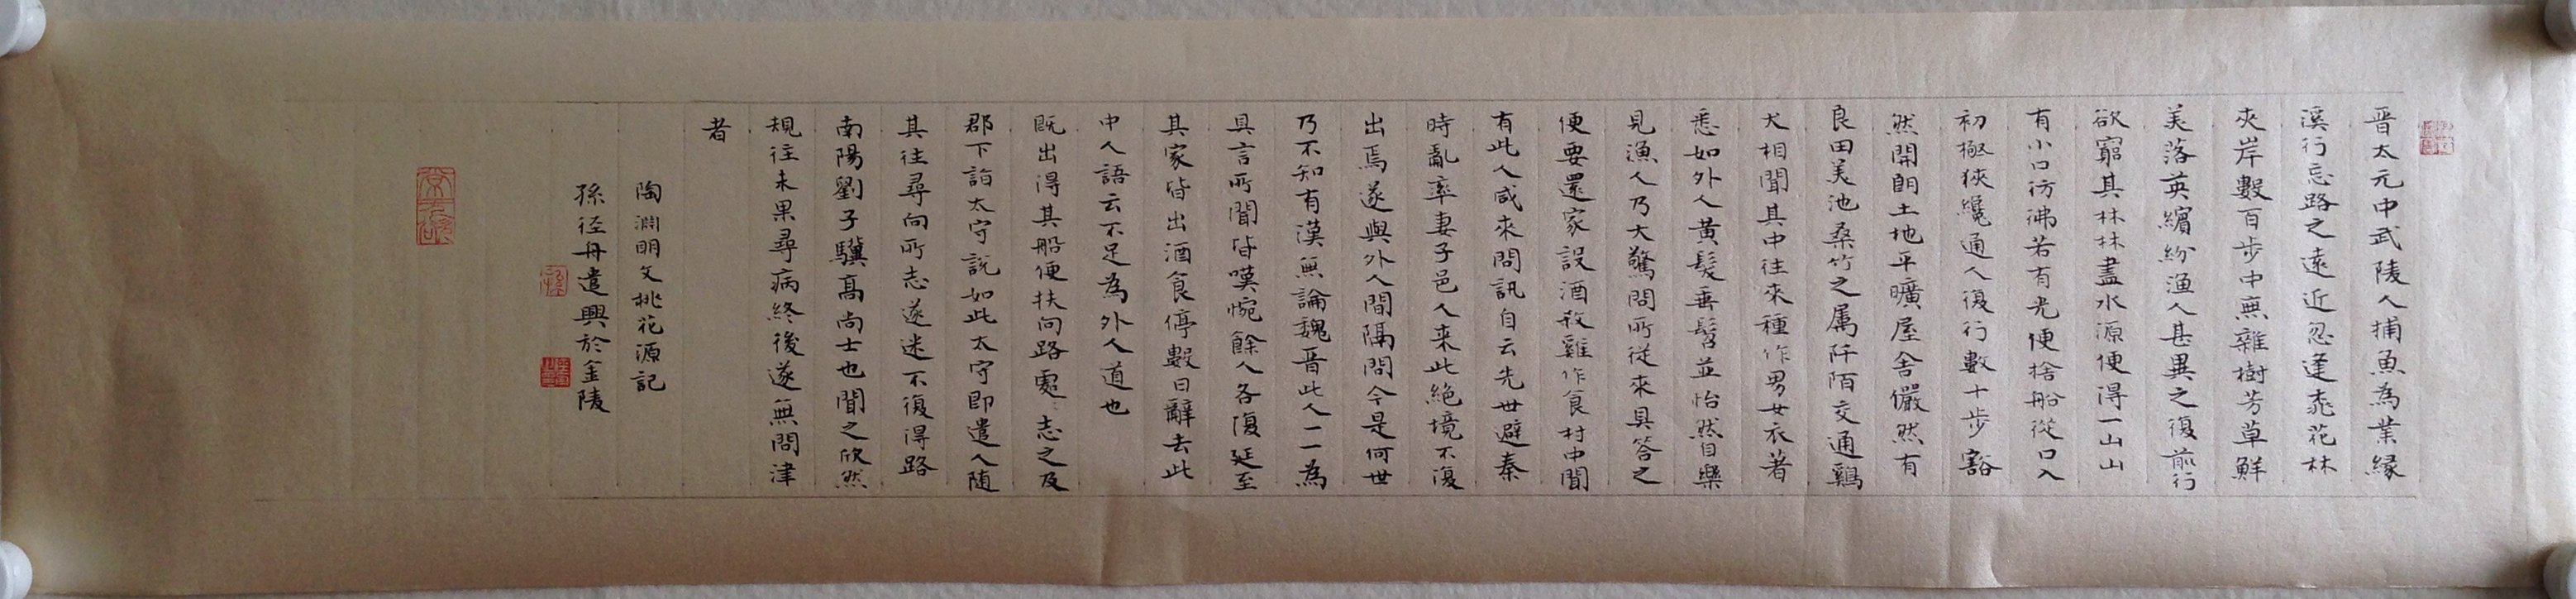 晉太元中武陵人捕魚為業緣
溪行忘路之遠近忽逢桃花林
夾岸數百步中無雜樹芳草鮮
美落英繽紛漁人甚異之復前行
欲窮其林林盡水源便得一山山
有小口彷彿若有光便捨船從口入
初極狹纔通人復行數十步豁
然開朗土地平曠屋舍儼然有
良田美池桑竹之属阡陌交通鷄
犬相聞其中往來種作男女衣著
悉如外人黃髮垂髫並怡然自樂
見漁人乃大驚問所從來具答之
便要還家設酒殺雞作食村中聞
有此人咸來問訊自云先世避秦
時亂率妻子邑人来此絕境不復
出焉遂與外人間隔問今是何世
乃不知有漢無論魏晉此人一一為
具言所聞皆嘆惋餘人各復延至
其家皆出酒食停數日辭去此
中人語云不足為外人道也
既出得其船便扶向路處〻志之及
郡下詣太守說如此太守即遣人随
其往尋向所志遂迷不復得路
南陽劉子驥高尚士也聞之欣然
規往未果尋病終後遂無問津
者
陶淵明文桃花源記
孫徑舟遣興於金陵